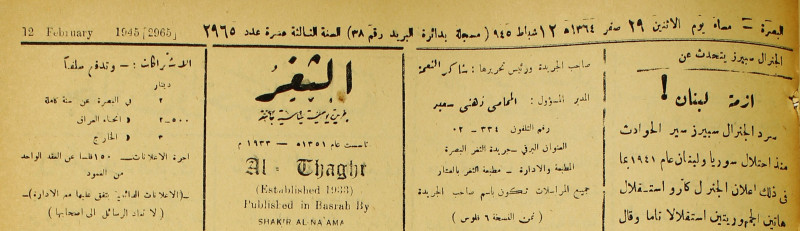 البصرة — مساء يوم الاثنين ٢٩ صفر ١٣٦٤ھ ١٢ شباط ٩٤٥ ( مسجلة بدائرة البريد رقم ٣٨) السنة الثالثة عشرة عدد ٢٩٦٥
12 February 1945 [2965]
الجنرال سبيرز يتحدث عن
ازمة لبنان !
سرد الجنرال سبيرز سير الحوادث
منذ احتلال سوريا ولبنان عام ١٩٤١ بما
في ذلك اعلان الجنرال كاترو استقلال
هاتين الجمهوريتين استقلالا تاما وقال
صاحب الجريدة ورئيس تحريرها : شاكر النعمة
المدير المسؤول : المحامي زهني سعيد
رقم التلفون ٣٣٤ — ٠٢
العنوان البرقي — جريدة الثغر البصرة
المطبعة والادارة — مطبعة الثغر بالعشار
جميع المراسلات تكون باسم صاحب الجريدة
( ثمن النسخة ٦ فلوس )
الثغر
جريدة يومية سياسية جامعة
تأسست عام ١٣٥١ — ١٩٣٣ م
Al - Thaghr
(Established 1933)
Published in Basrah By
SHAKIR AL-NA'AMA
الاشتراكات : — وتدفع سلفاً
دينار
٢ في البصرة عن سنة كاملة
٢—٥٠٠ انحاء العراق
٣ الخارج
اجرة الاعلانات — ١٥٠ فلسا عن العقد الواحد
من العمود
—(الاعلانات الدائمية يتفق عليها مع الادارة)—
( لا تعاد الرسائل الى اصحابها )